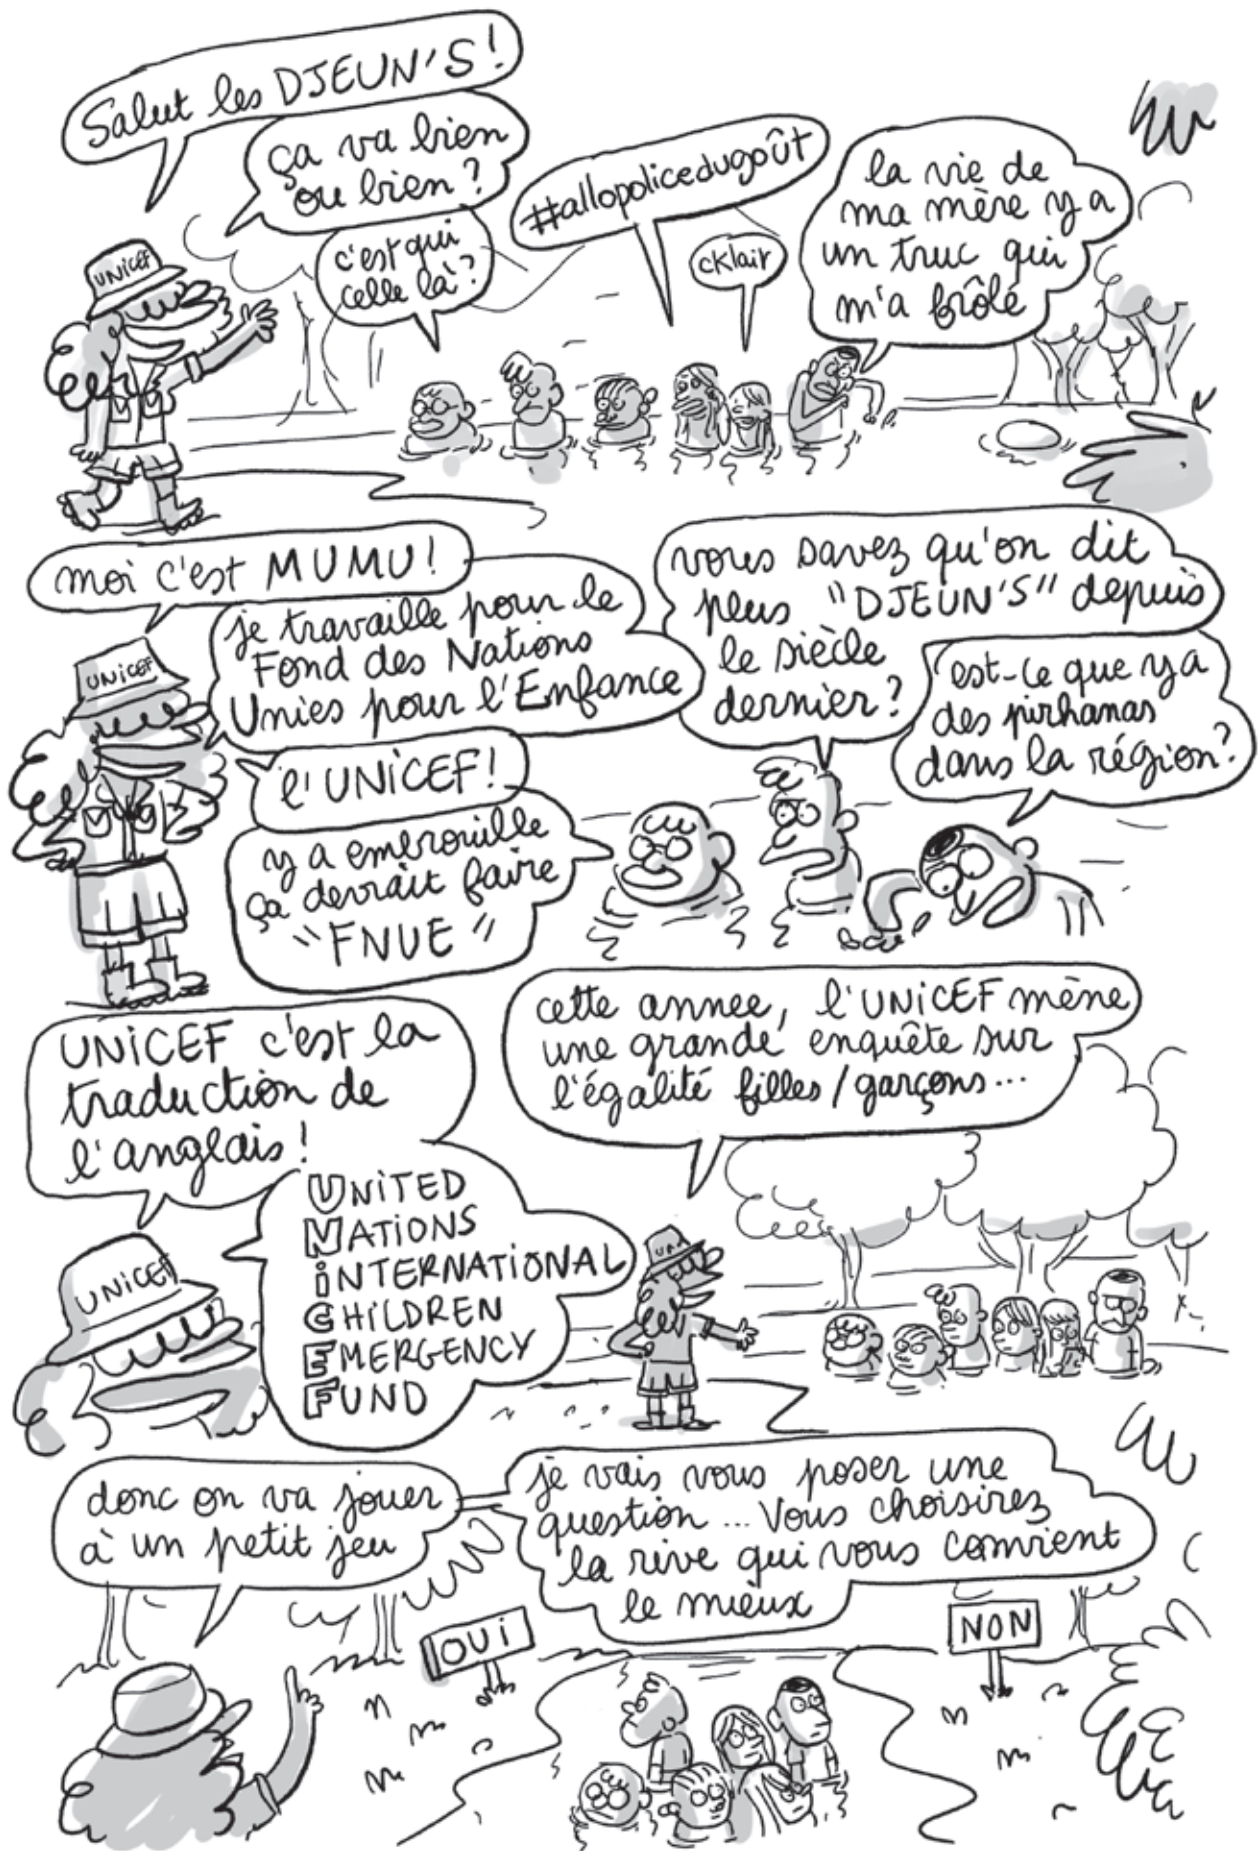 Salut les DJEUN'S !
ça va bien
ou bien ?
UNICEF
c'est qui
celle là ?
#allopolicedugoût
cklair
la vie de
ma mère y a
un truc qui
m'a frôlé
moi c'est MUMU !
je travaille pour le
Fond des Nations
Unies pour l'Enfance
UNICEF
l'UNICEF !
vous savez qu'on dit
plus "DJEUN'S" depuis
le siècle
dernier ?
est-ce que y a
des pirhanas
dans la région ?
y a embrouille
ça devrait faire
"FNUE"
UNICEF c'est la
traduction de
l'anglais !
UNICEF
UNITED
NATIONS
INTERNATIONAL
CHILDREN
EMERGENCY
FUND
cette annee, l'UNICEF mène
une grande enquête sur
l'égalité filles / garçons...
donc on va jouer
à un petit jeu
je vais vous poser une
question ... Vous choisirez
la rive qui vous convient
le mieux
OUI
NON